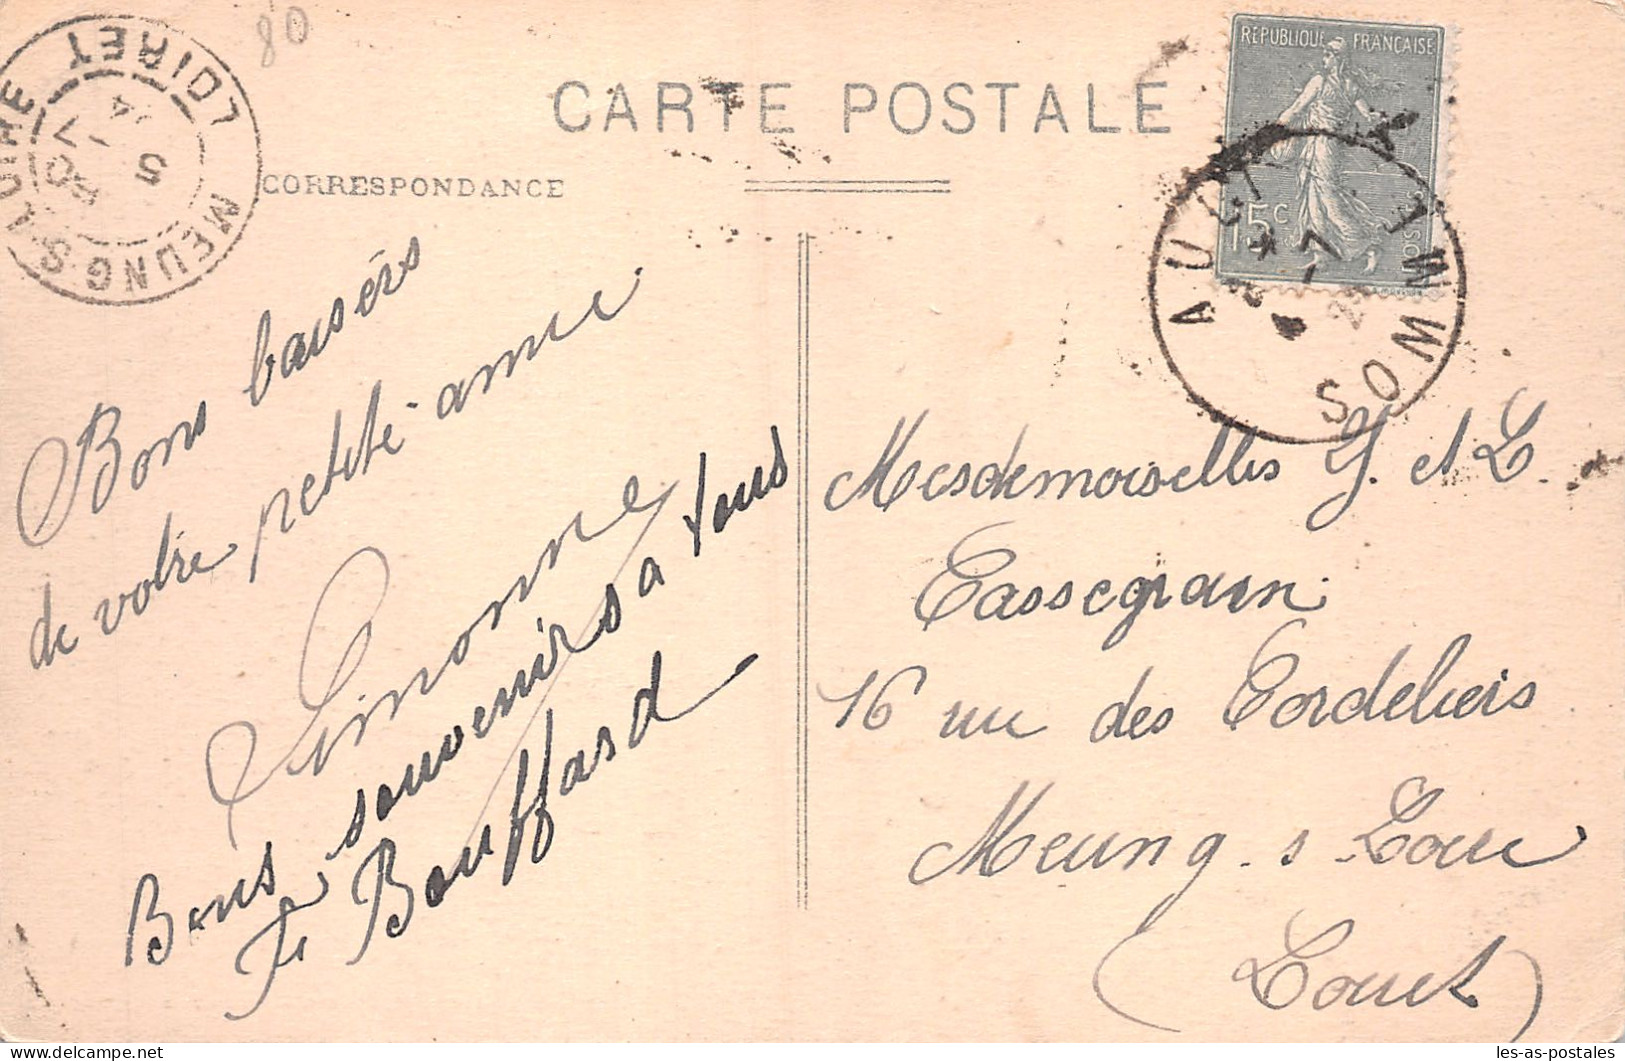 80
LOIRET
MEUNG S LOIRE
5
7
CARTE POSTALE
CORRESPONDANCE
REPUBLIQUE FRANÇAISE
15c
AULT
SOMME
4 - 7
Bons baisers
de votre petite amie
Simonne
Bons souvenirs a tous
Bouffard
Mesdemoiselles Y. et L.
Cassegrain
16 rue des Cordeliers
Meung - s - Loire
(Loiret)
les-as-postales